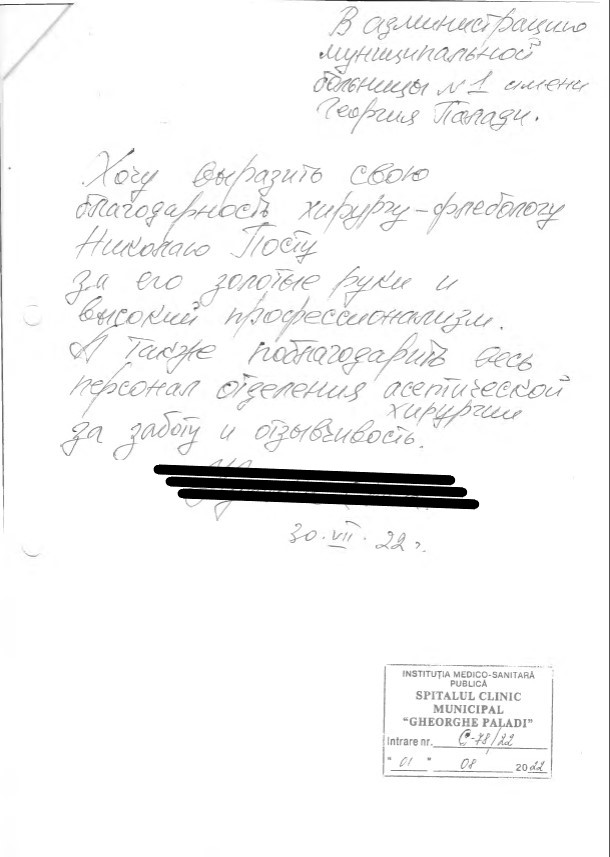 В администрацию
муниципальной
больницы №1 имени
Георгия Палади.
Хочу выразить свою
благодарность хирургу-флебологу
Николаю Посту
за его золотые руки и
высокий профессионализм.
А также поблагодарить весь
персонал отделения асептической
хирургии
за заботу и отзывчивость.
30.VII.22 г.
INSTITUȚIA MEDICO-SANITARĂ
PUBLICĂ
SPITALUL CLINIC
MUNICIPAL
"GHEORGHE PALADI"
Intrare nr. C-78/22
"01" 08 2022